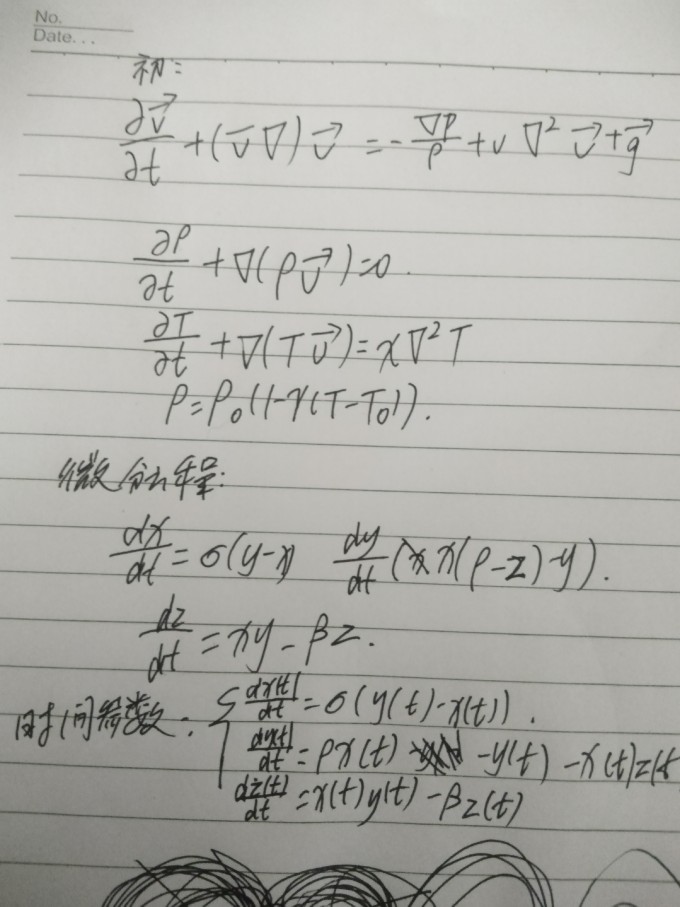 No.
Date. . .
初:
∂v⃗/∂t + (v⃗∇) v⃗ = - ∇P/ρ + ν∇² v⃗ + g⃗
∂ρ/∂t + ∇(ρv⃗) = 0.
∂T/∂t + ∇(Tv⃗) = χ∇²T
ρ = ρ₀(1-γ(T-T₀)).
微分方程:
dx/dt = σ(y-x) dy/dt (x(ρ-z)-y).
dz/dt = xy - βz.
时间参数: { dx(t)/dt = σ(y(t)-x(t)).
dy(t)/dt = ρx(t) -y(t) -x(t)z(t
dz(t)/dt = x(t)y(t) - βz(t)